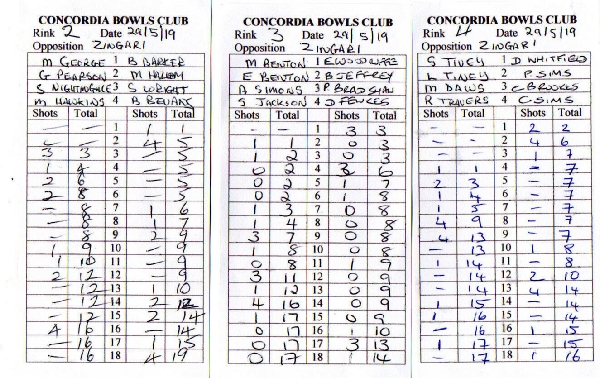 CONCORDIA BOWLS CLUB
Rink 2 Date 29/5/19
Opposition ZINGARI
M GEORGE 1 B BARKER
G PEARSON 2 M HALLAM
S NIGHTINGALE 3 S WRIGHT
M HAWKINS 4 B BEVANS
Shots Total Shots Total
— — 1 1 1
— — 2 4 5
3 3 3 — 5
1 4 4 — 5
2 6 5 — 5
2 8 6 — 5
— 8 7 1 6
— 8 8 1 7
— 8 9 2 9
1 9 10 — 9
1 10 11 — 9
2 12 12 — 9
— 12 13 1 10
— 12 14 2 12
— 12 15 2 14
4 16 16 — 14
— 16 17 1 15
— 16 18 4 19
CONCORDIA BOWLS CLUB
Rink 3 Date 29/5/19
Opposition ZINGARI
M BENTON 1 E WOODWARD
E BENTON 2 B JEFFREY
A SIMONS 3 P BRADSHAW
S JACKSON 4 D
Shots Total Shots Total
— — 1 3 3
1 1 2 0 3
1 2 3 0 3
0 2 4 3 6
0 2 5 1 7
0 2 6 1 8
1 3 7 0 8
1 4 8 0 8
3 7 9 0 8
1 8 10 0 8
0 8 11 1 9
3 11 12 0 9
1 12 13 0 9
4 16 14 0 9
1 17 15 0 9
0 17 16 1 10
0 17 17 3 13
0 17 18 1 14
CONCORDIA BOWLS CLUB
Rink 4 Date 29/5/19
Opposition ZINGARI
S TIVEY 1 D WHITFIELD
L TIVEY 2 P SIMS
M DAWS 3 C BROOKS
R TRAVERS 4 C SIMS
Shots Total Shots Total
— — 1 2 2
— — 2 4 6
— — 3 1 7
1 1 4 — 7
2 3 5 — 7
1 4 6 — 7
1 5 7 — 7
4 9 8 — 7
4 13 9 — 7
— 13 10 1 8
1 14 11 — 8
— 14 12 2 10
— 14 13 4 14
1 15 14 — 14
1 16 15 — 14
— 16 16 1 15
1 17 17 — 15
— 17 18 1 16